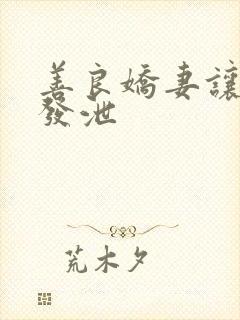 善良嬌妻讓
發泄
荒木夕